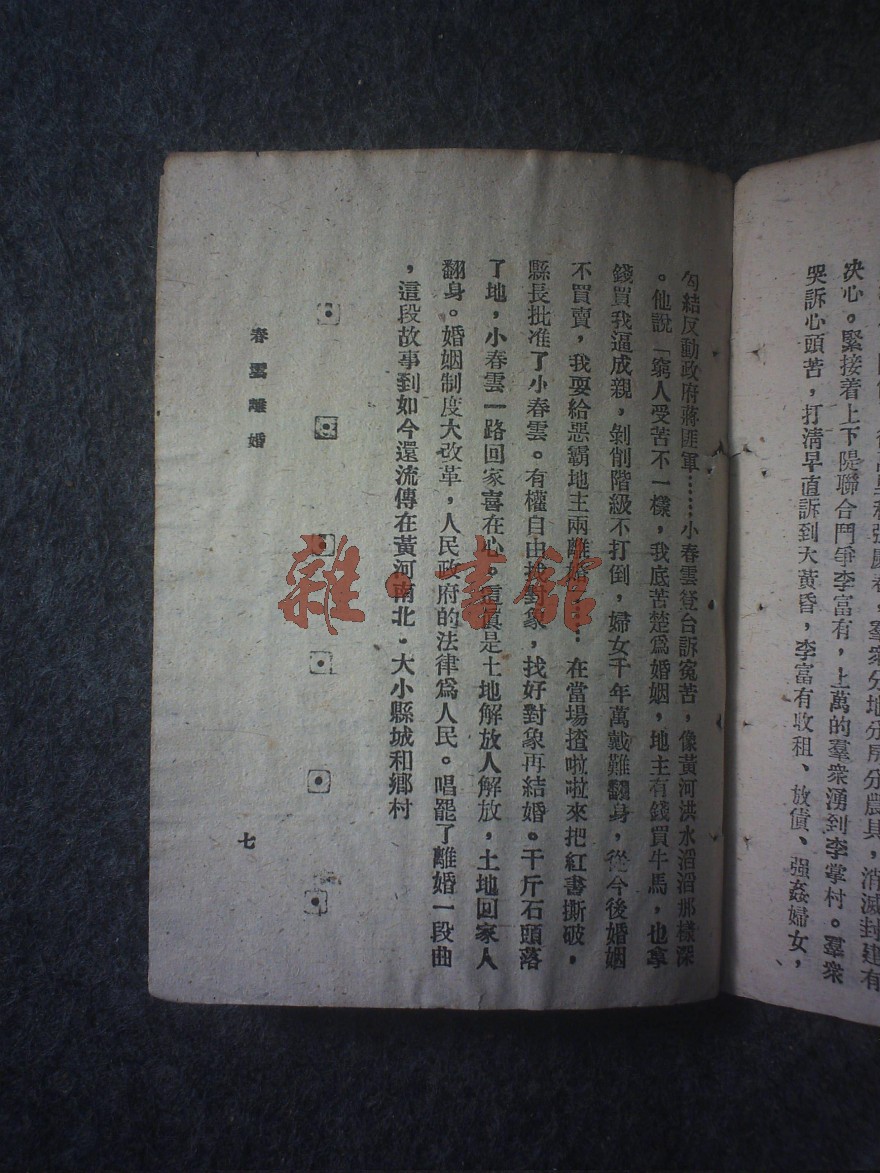 決心。緊接着上下隄聯合鬥爭李富有，上萬的羣衆湧到李掌村。羣衆
哭訴心頭苦，打清早直訴到大黃昏，李富有收租、放債、强姦婦女，
勾結反動政府蔣匪軍……小春雲登台訴冤苦，像黃河洪水滔滔那樣深
。他說「窮人受苦不一樣，我底苦楚爲婚姻，地主有錢買牛馬，也拿
錢買我逼成親，剝削階級不打倒，婦女千年萬戴難翻身，從今後婚姻
不買賣，我要給惡霸地主兩離婚……在當場揸啦啦來把紅書撕破，
縣長批准了小春雲。有權自由找對象，找好對象再結婚。千斤石頭落
了地，小春雲一路回家喜在心。這眞是土地解放人解放，土地回家人
翻身。婚姻制度大改革，人民政府的法律爲人民。唱罷了離婚一段曲
，這段故事到如今還流傳在黃河南北．大小縣城和鄉村
春雲離婚
七
雜·書館